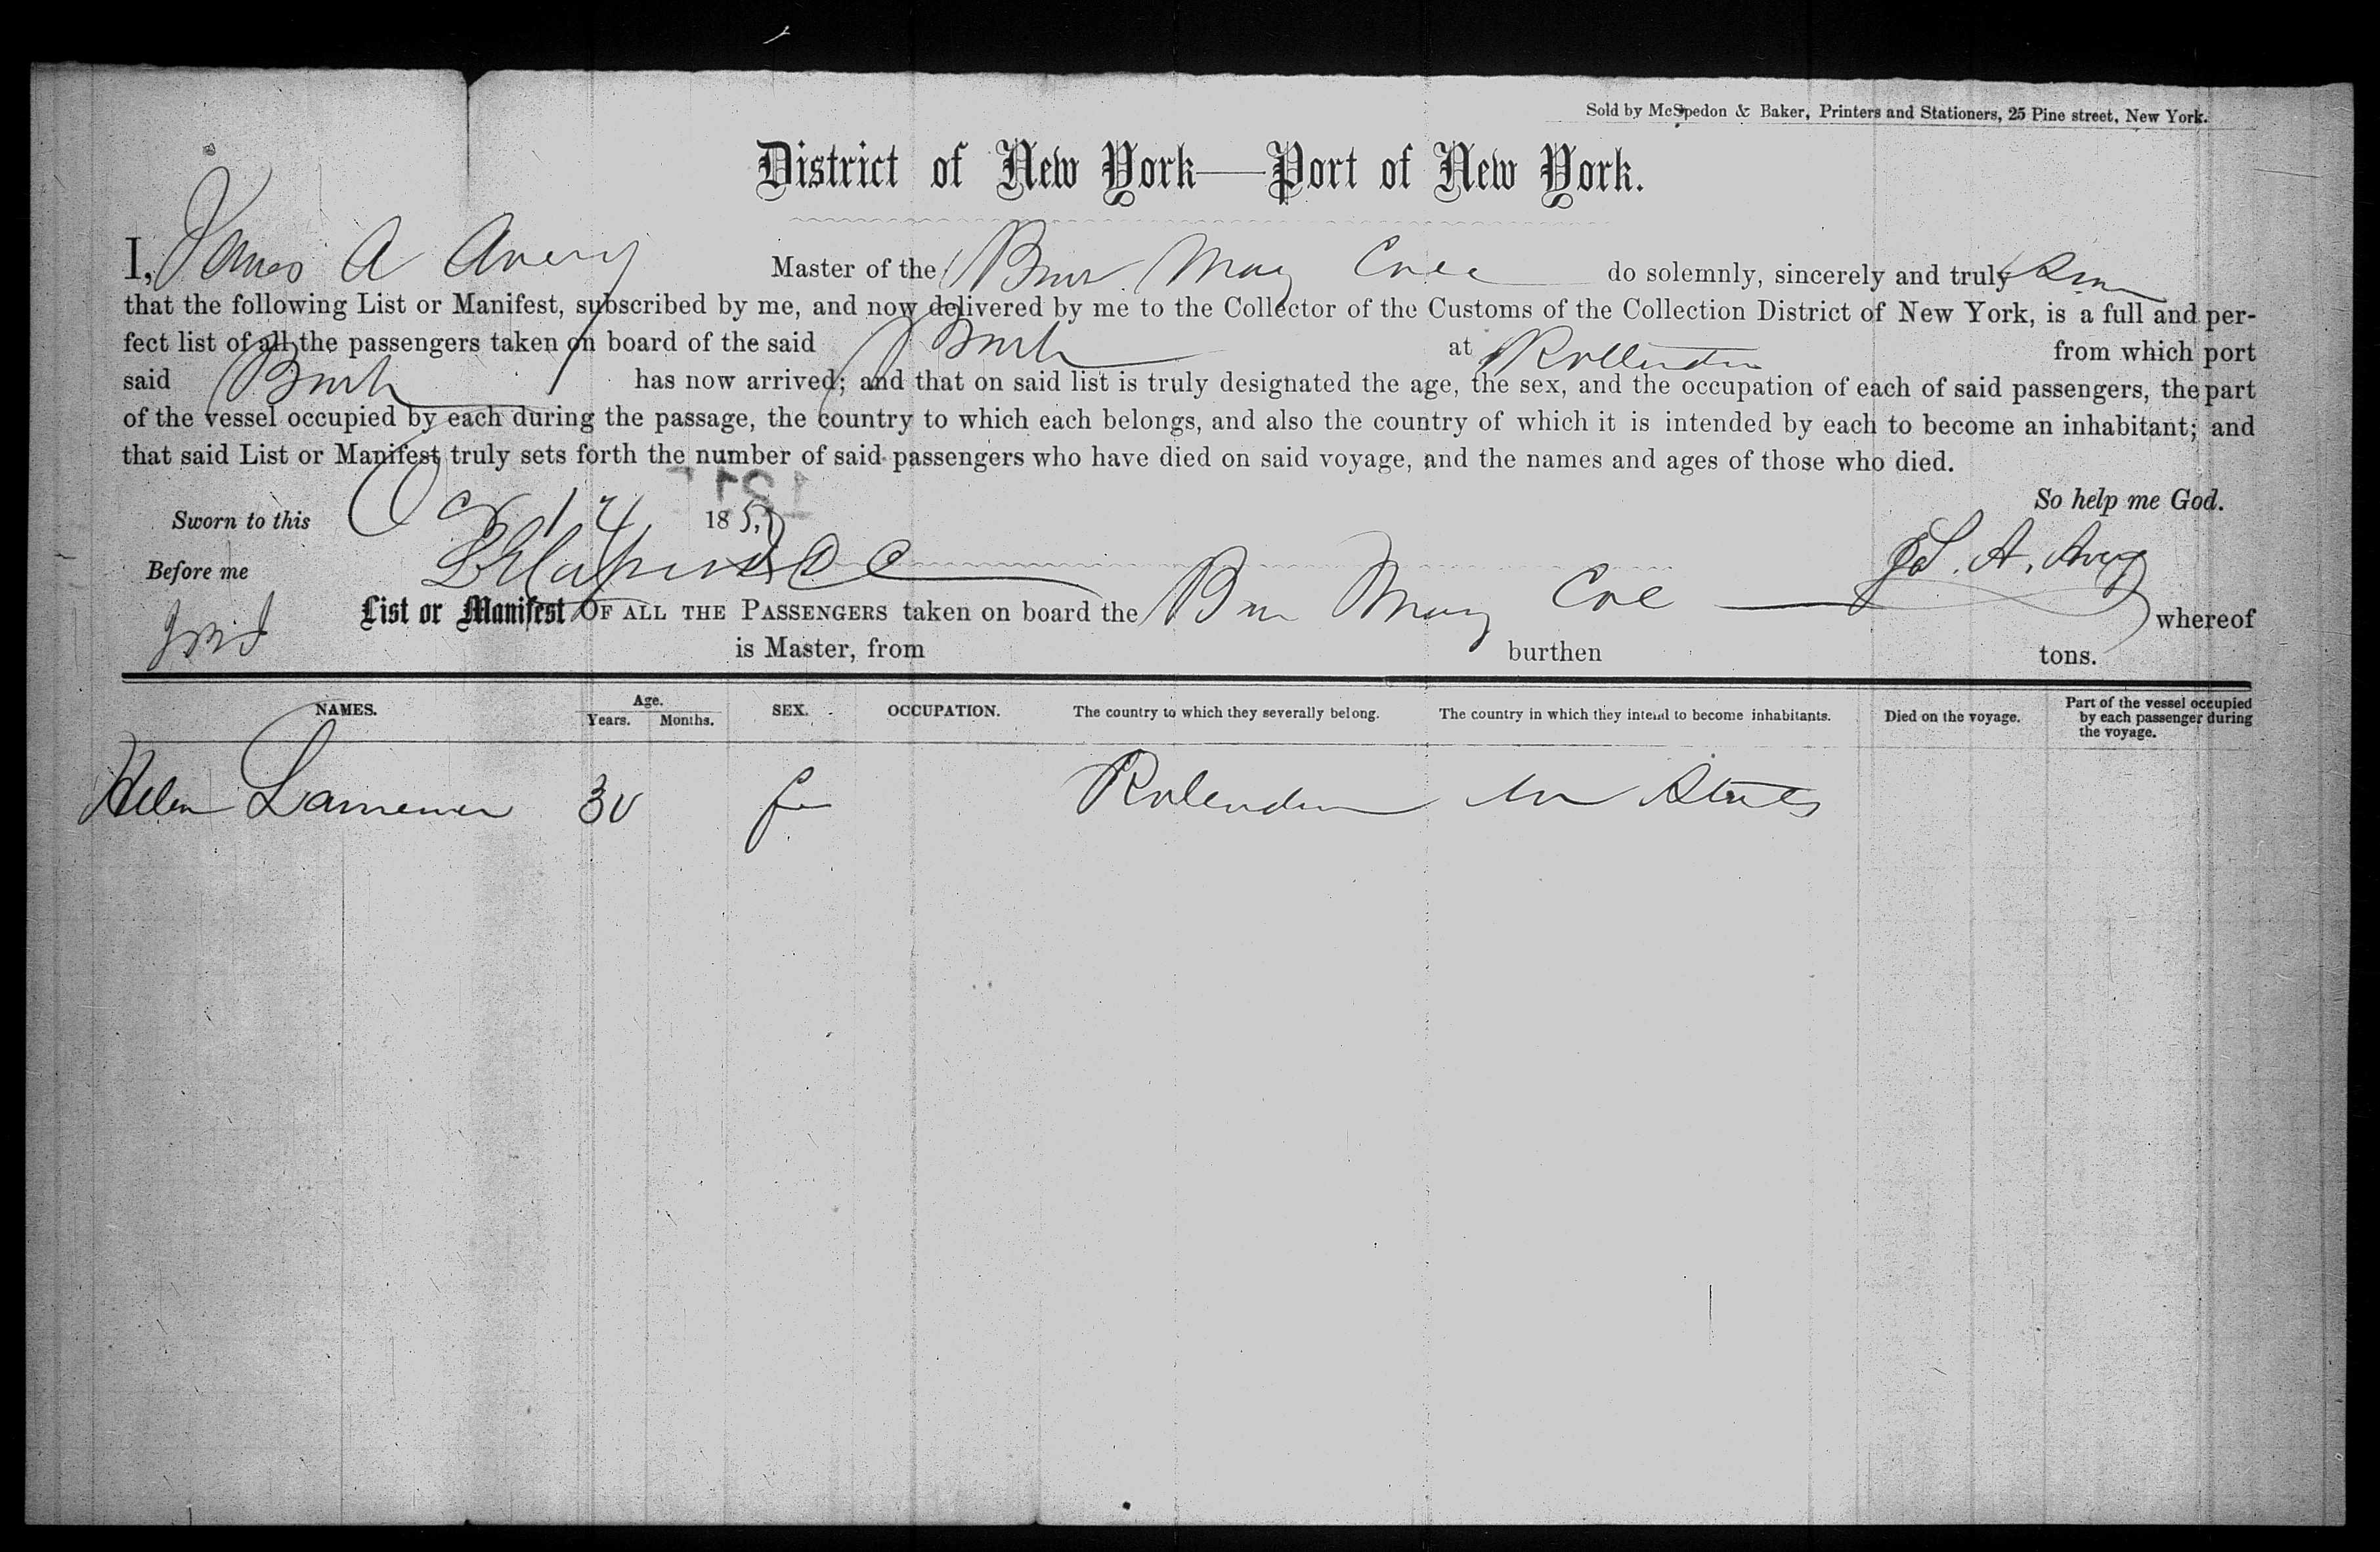 Sold by McSpedon & Baker, Printers and Stationers, 25 Pine street, New York.
District of New York—Port of New York.
I, James A Avery Master of the do solemnly, sincerely and truly
that the following List or Manifest, subscribed by me, and now delivered by me to the Collector of the Customs of the Collection District of New York, is a full and per-
fect list of all the passengers taken on board of the said at from which port
said has now arrived; and that on said list is truly designated the age, the sex, and the occupation of each of said passengers, the part
of the vessel occupied by each during the passage, the country to which each belongs, and also the country of which it is intended by each to become an inhabitant; and
that said List or Manifest truly sets forth the number of said passengers who have died on said voyage, and the names and ages of those who died.
So help me God.
Sworn to this 14 185
Before me A. Avery
List or Manifest OF ALL THE PASSENGERS taken on board the Coe whereof
is Master, from burthen tons.
NAMES. Age. Years. Months. SEX. OCCUPATION. The country to which they severally belong. The country in which they intend to become inhabitants. Died on the voyage. Part of the vessel occupied by each passenger during the voyage.
Helen 30 States